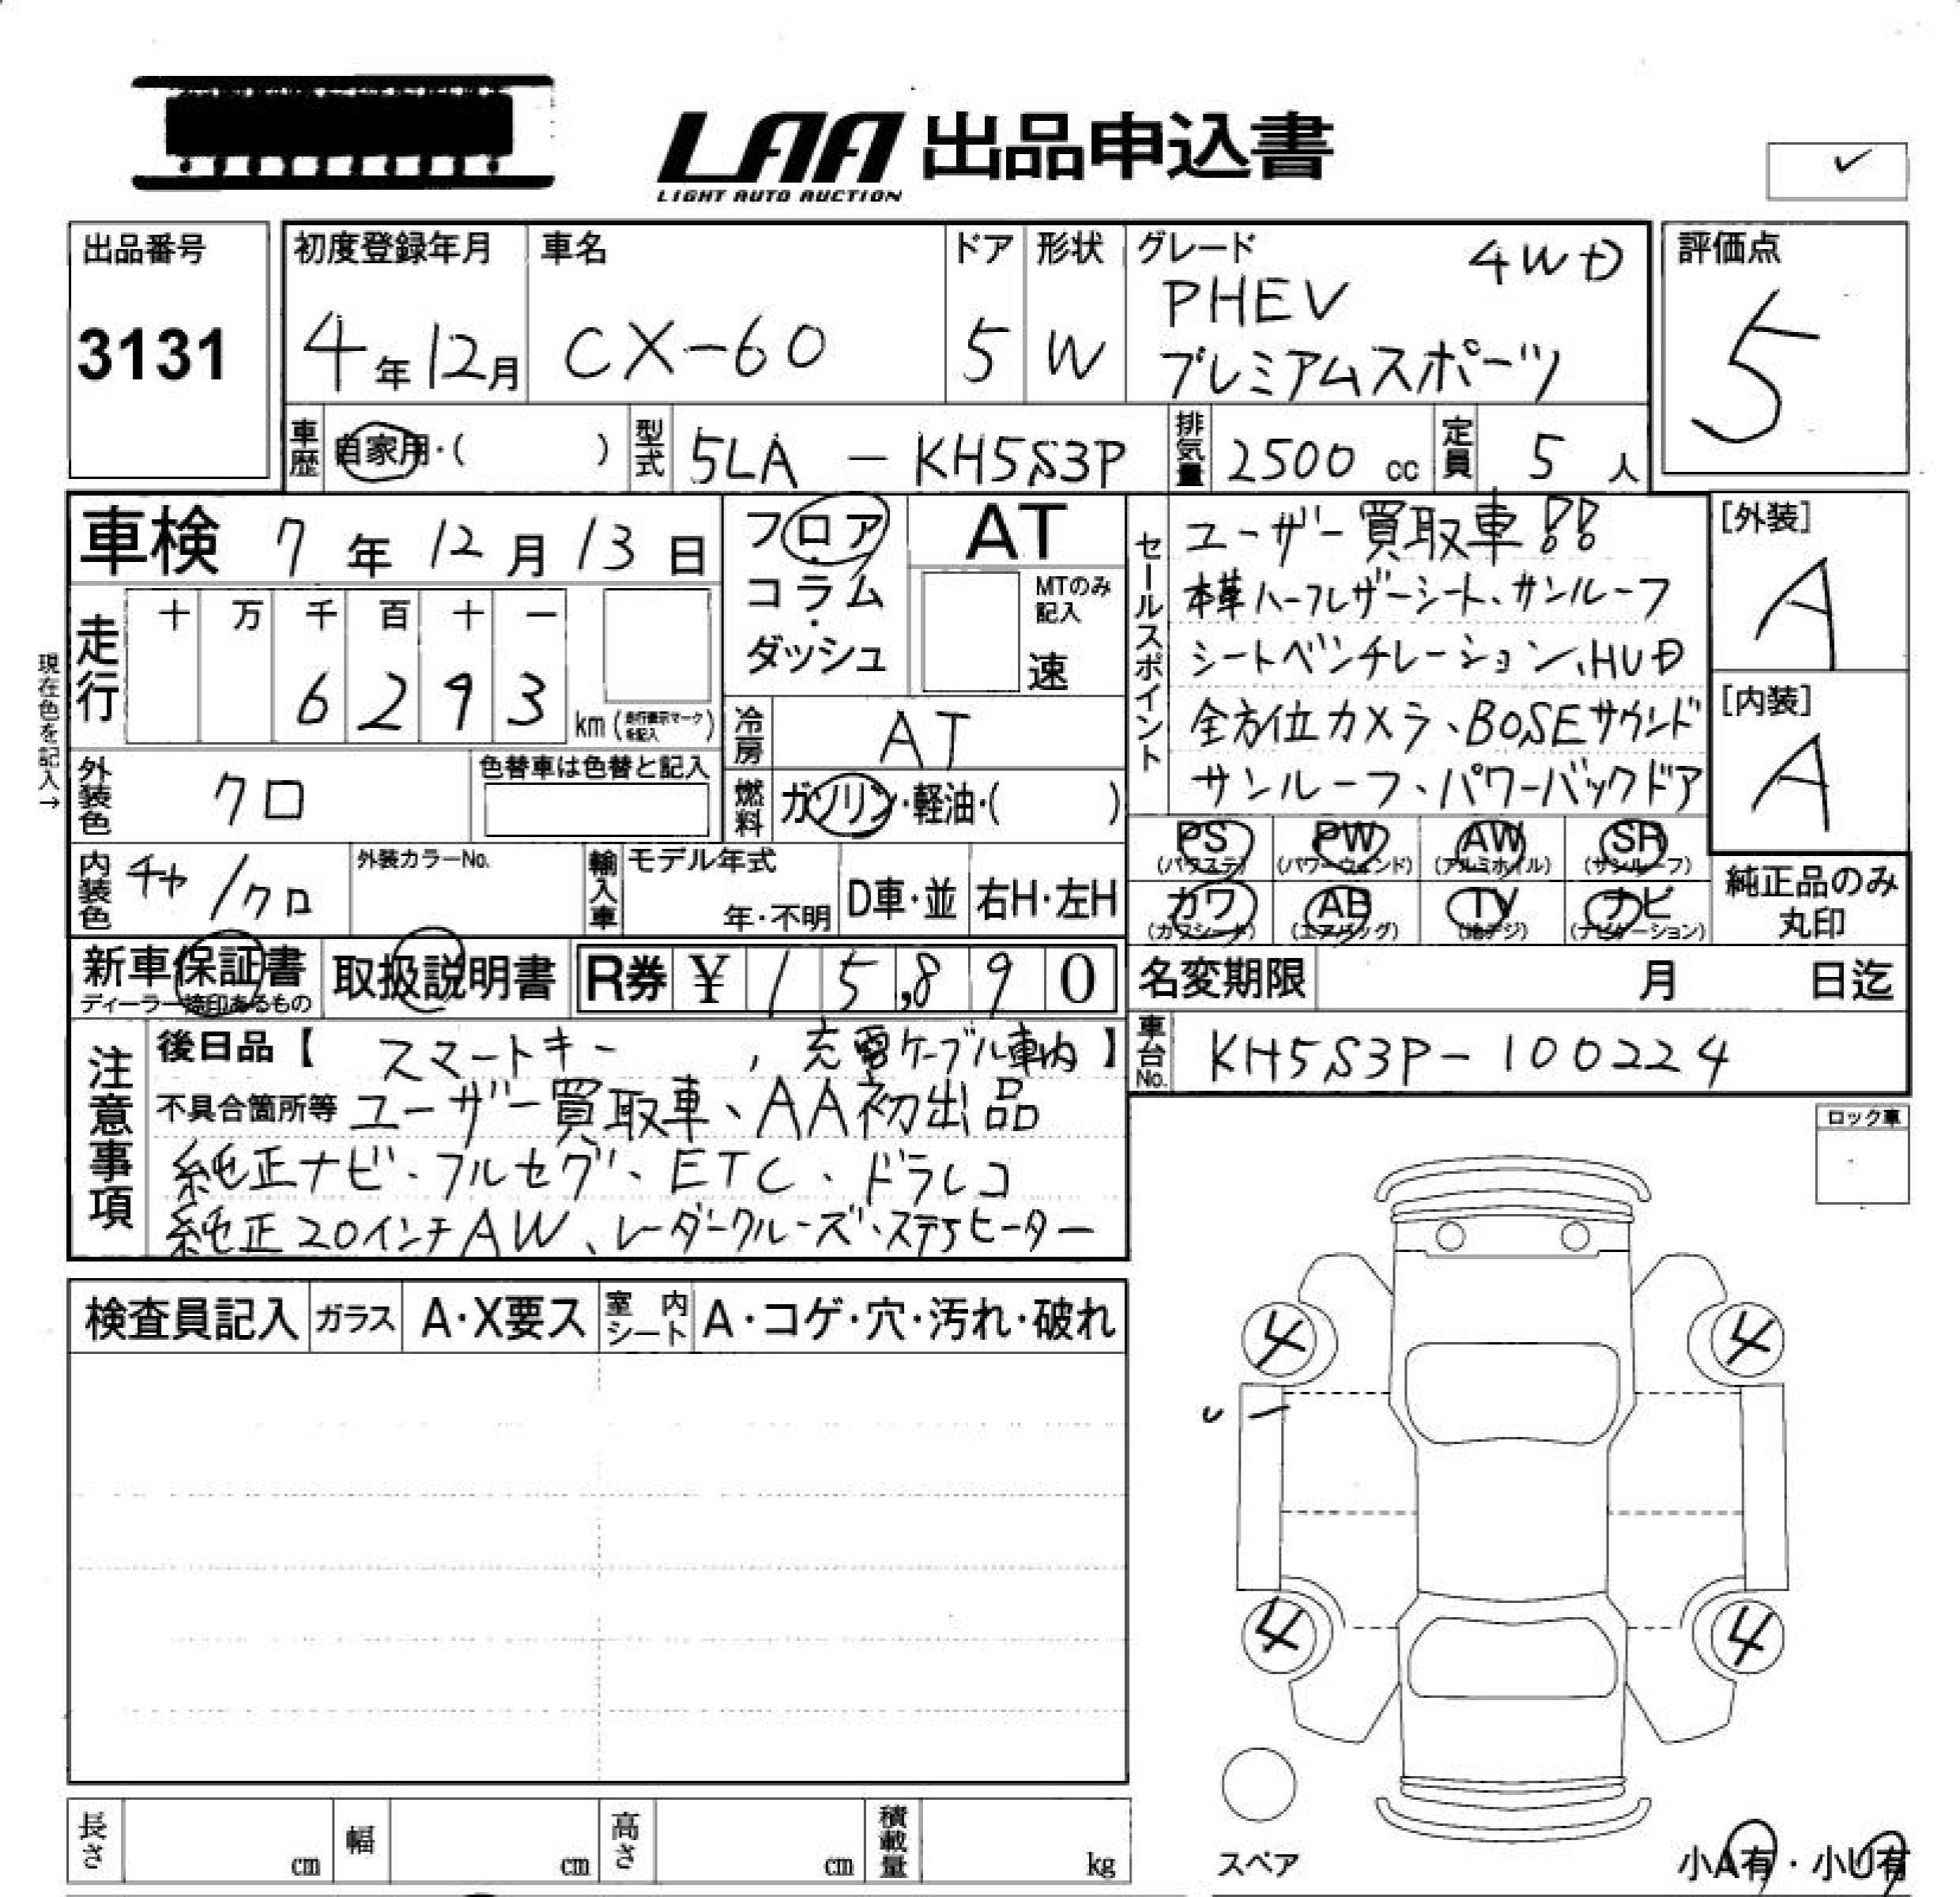 LAA 出品申込書
LIGHT AUTO AUCTION
出品番号
3131
初度登録年月
4年12月
車名
CX-60
ドア
5
形状
W
グレード
4WD
PHEV
プレミアムスポーツ
評価点
5
車歴
自家用・( )
型式
5LA - KH5S3P
排気量
2500 cc
定員
5 人
車検 7年12月13日
走行
十 万 千 百 十 一
6 2 9 3
km (走行表示マークを記入)
現在色を記入→
フロア
・
コラム
・
ダッシュ
AT
MTのみ
記入
速
冷房
AT
燃料
ガソリン・軽油・( )
セールスポイント
ユーザー買取車!!
本革ハーフレザーシート、サンルーフ
シートベンチレーション、HUD
全方位カメラ、BOSEサウンド
サンルーフ、パワーバックドア
[外装]
A
[内装]
A
外装色
クロ
色替車は色替と記入
内装色
チャ/クロ
外装カラーNo.
輸入車
モデル年式
年・不明
D車・並
右H・左H
PS
(パワステ)
PW
(パワーウィンド)
AW
(アルミホイル)
SR
(サンルーフ)
カワ
(カワシート)
AB
(エアバッグ)
TV
(地デジ)
ナビ
(ナビゲーション)
純正品のみ
丸印
新車保証書
ディーラー捺印あるもの
取扱説明書
R券 ¥ 15,890
名変期限 月 日迄
車台No.
KH5S3P-100224
注意事項
後日品【 スマートキー , 充電ケーブル車内 】
不具合箇所等 ユーザー買取車、AA初出品
純正ナビ・フルセグ、ETC、ドラレコ
純正20インチAW、レーダークルーズ、ステアヒーター
ロック車
検査員記入
ガラス
A・X要ス
室内シート
A・コゲ・穴・汚れ・破れ
4
4
4
4
スペア
小A有・小U有
長さ cm
幅 cm
高さ cm
積載量 kg